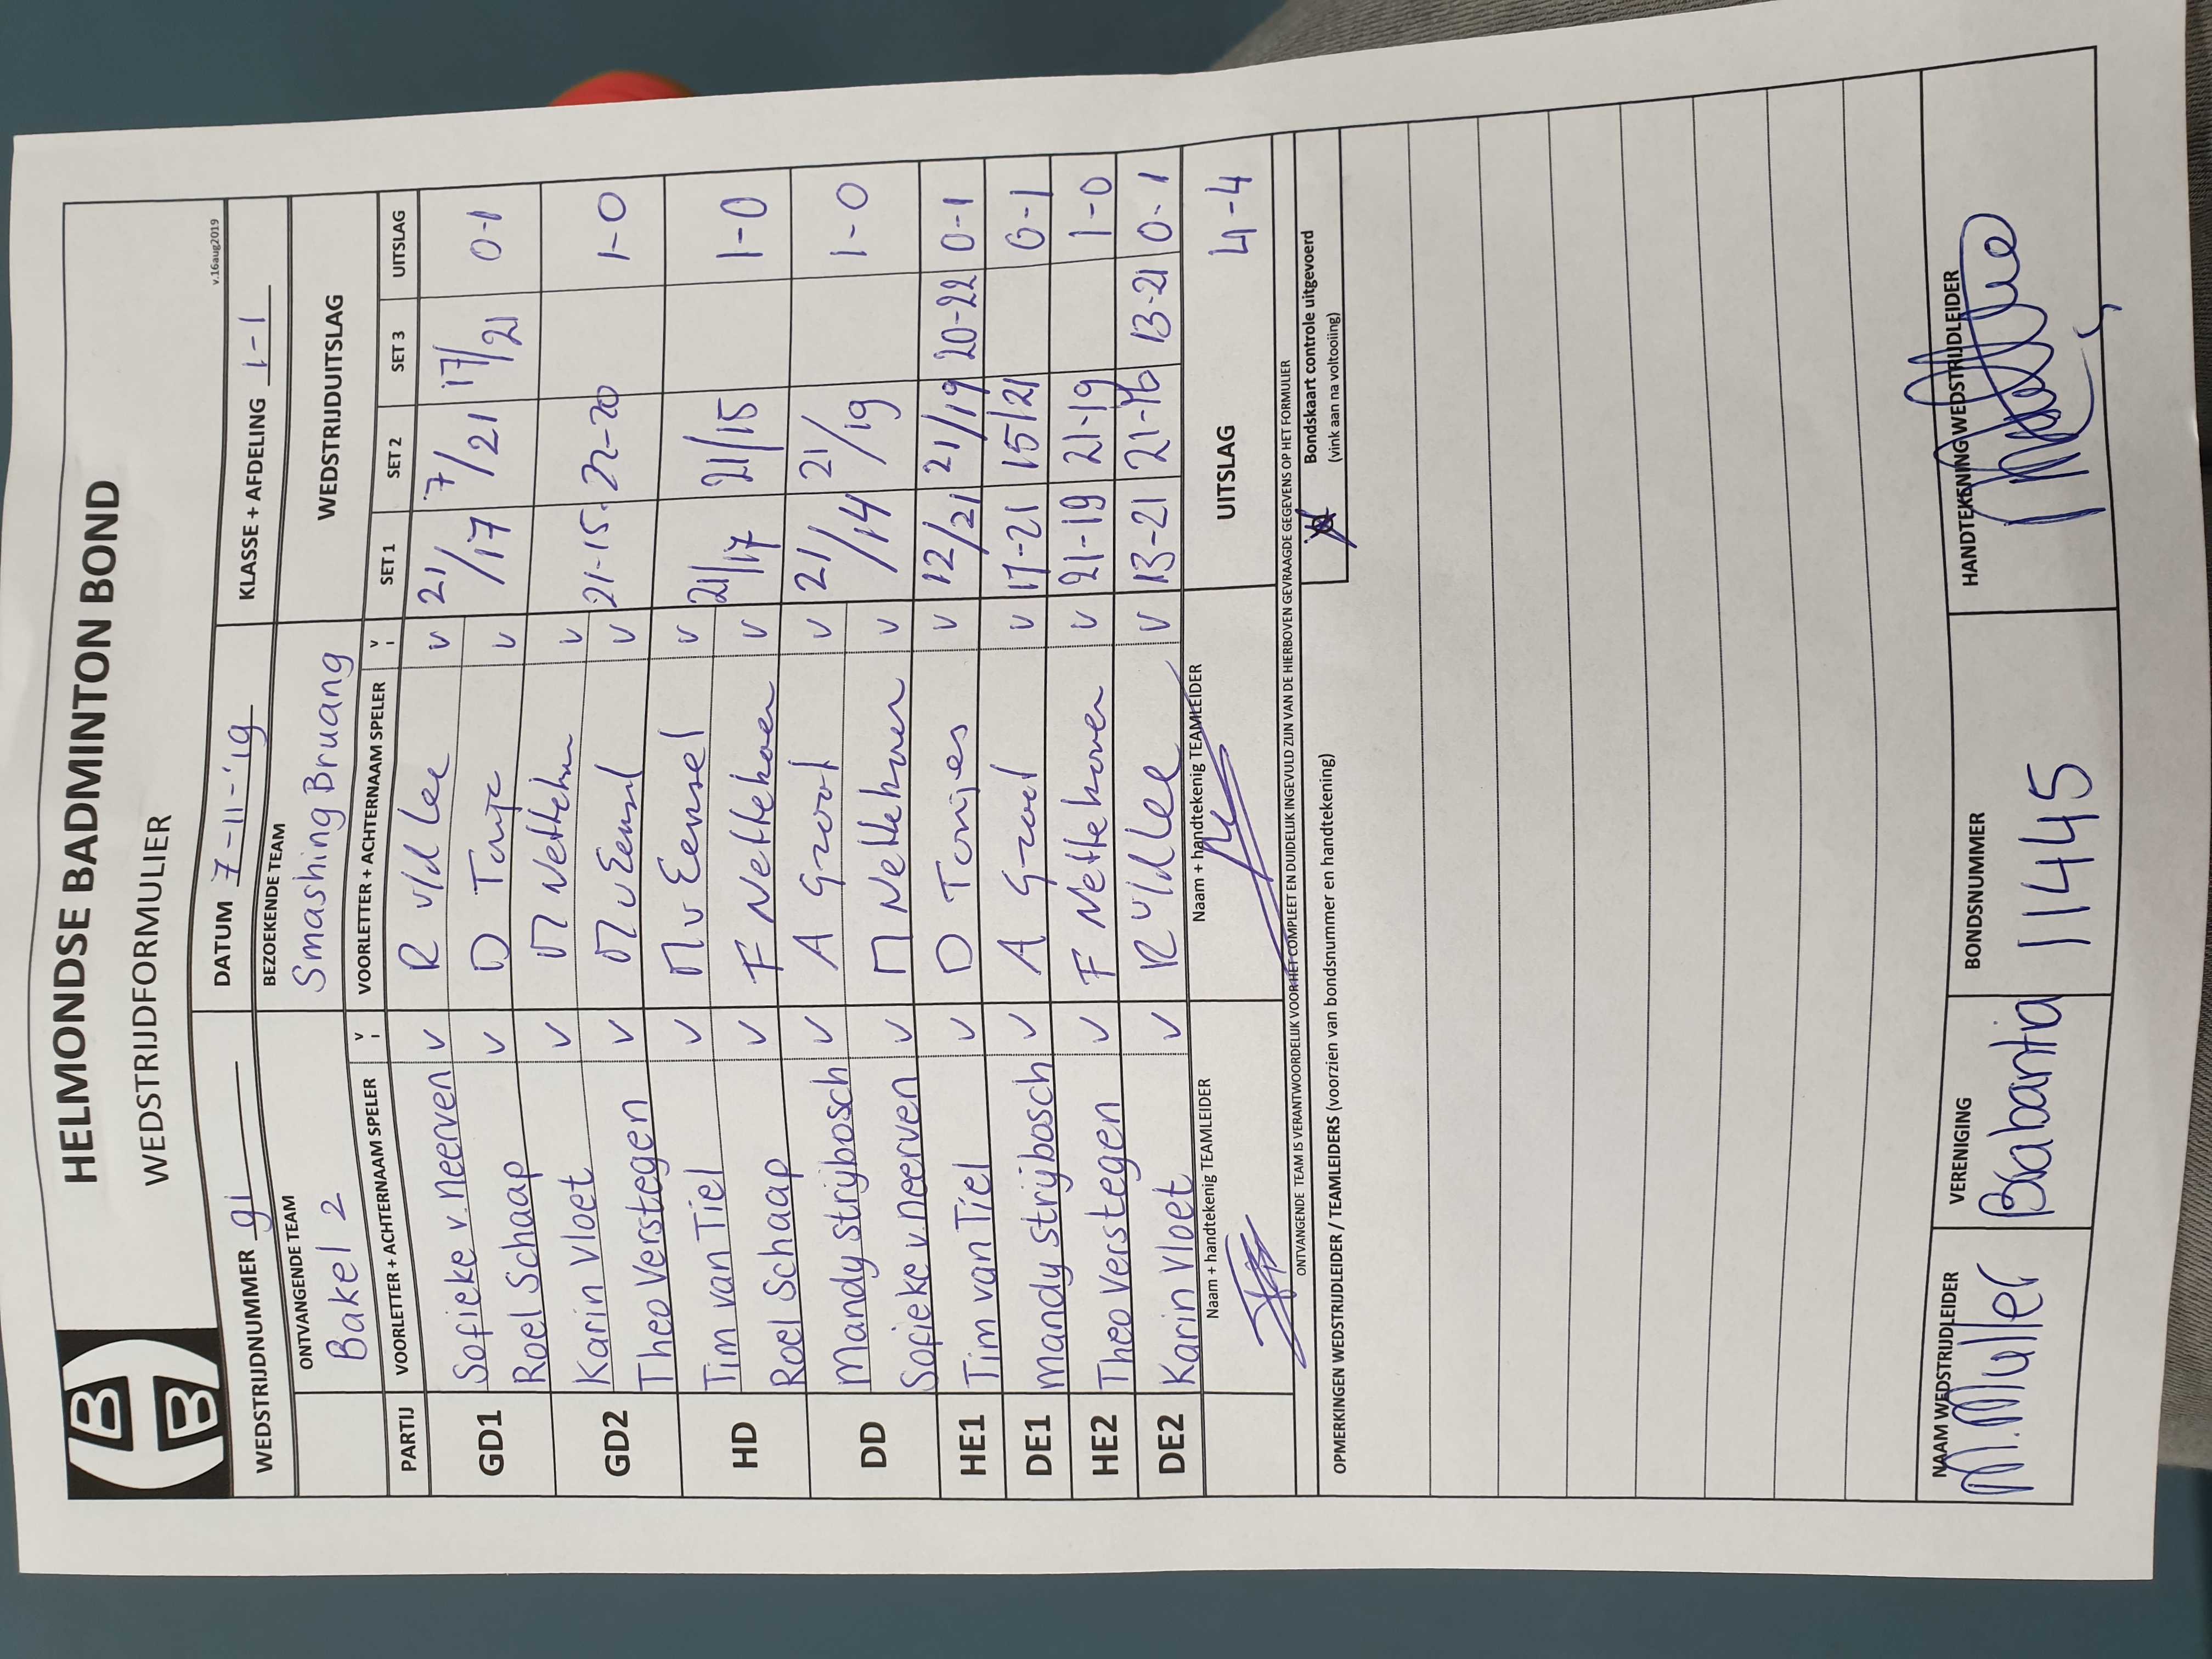 HELMONDSE BADMINTON BOND
WEDSTRIJDFORMULIER
v.16aug2019
WEDSTRIJDNUMMER 91 DATUM 7-11-'19 KLASSE + AFDELING 1-1
ONTVANGENDE TEAM BEZOEKENDE TEAM WEDSTRIJDUITSLAG
Bakel 2 Smashing Bruang
PARTIJ VOORLETTER + ACHTERNAAM SPELER V VOORLETTER + ACHTERNAAM SPELER V SET 1 SET 2 SET 3 UITSLAG
GD1 Sofieke v. neerven v R v/d Lee v 21/17 7/21 17/21 0-1
Roel Schaap v D v
GD2 Karin Vloet v v 21-15 22-20 1-0
Theo Verstegen v M v Eensel v
HD Tim van Tiel v M v Eensel v 21/17 21/15 1-0
Roel Schaap v F Nettekoven v
DD Mandy Strijbosch v A Groot v 21/14 21/19 1-0
Sofieke v. neerven v M Nettekoven v
HE1 Tim van Tiel v D Tonjes v 12/21 21/19 20-22 0-1
DE1 Mandy Strijbosch v A Groot v 17-21 15/21 0-1
HE2 Theo Verstegen v F Nettekoven v 21-19 21-19 1-0
DE2 Karin Vloet v R v/d Lee v 13-21 21-16 13-21 0-1
Naam + handtekenig TEAMLEIDER Naam + handtekenig TEAMLEIDER UITSLAG 4-4
ONTVANGENDE TEAM IS VERANTWOORDELIJK VOOR HET COMPLEET EN DUIDELIJK INGEVULD ZIJN VAN DE HIERBOVEN GEVRAAGDE GEGEVENS OP HET FORMULIER
Bondskaart controle uitgevoerd
(vink aan na voltooiing)
OPMERKINGEN WEDSTRIJDLEIDER / TEAMLEIDERS (voorzien van bondsnummer en handtekening)
NAAM WEDSTRIJDLEIDER VERENIGING BONDSNUMMER HANDTEKENING WEDSTRIJDLEIDER
M. Muller Brabantia 11445